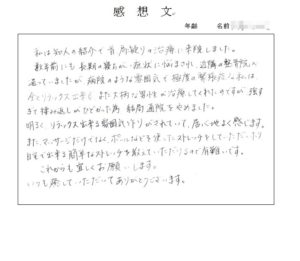 感想文
年齢 名前
私は知人の紹介で首肩周りの治療に来院しました。
数年前にも長期の寝ちがい症状に悩まされ、近隣の整骨院へ
通っていましたが病院のような雰囲気で極度の緊張症な私は
今一リラックス出来ず、また大柄な男性が治療してくれたのですが強す
ぎて揉み返しがひどかった為 短期通院でやめました。
明るく リラックス出来る雰囲気作りがされていて、居心地よく感じます。
また、マッサージだけでなく、ボールなどを使ったストレッチをしていただいたり
自宅で出来る簡単なストレッチを教えていただけるので有難いです。
これからも宜しくお願いします。
いつも癒していただいてありがとうございます。